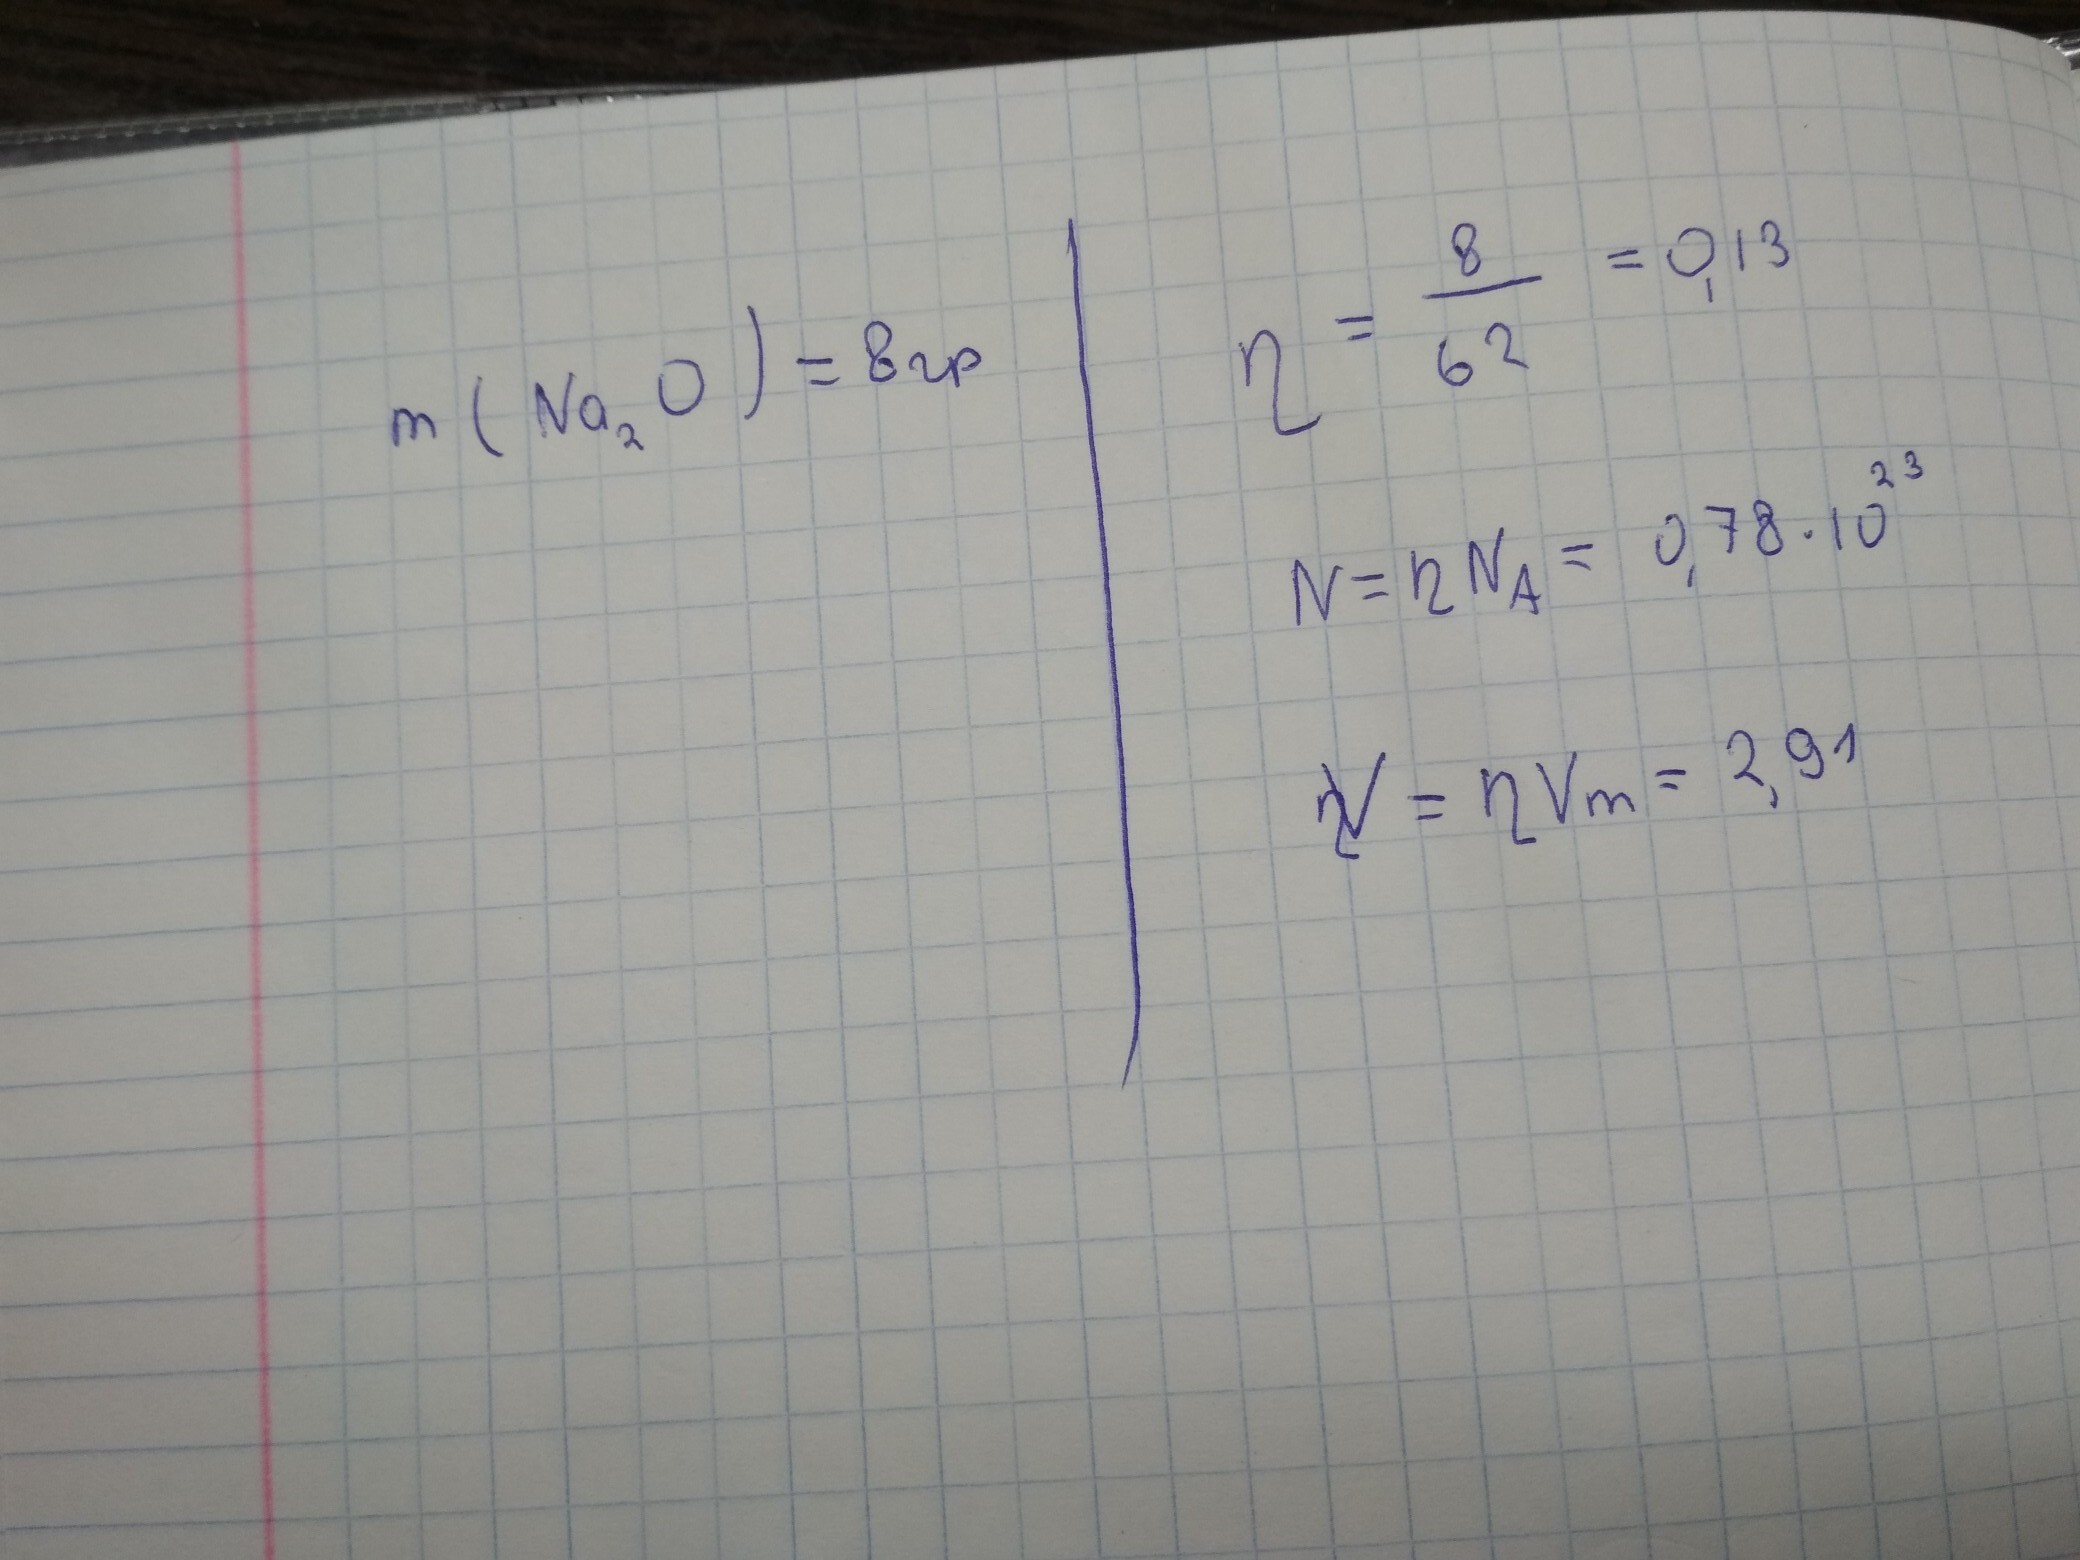 m(Na₂O) = 8 гр
η = 8/62 = 0,13
N = η N_A = 0,78·10²³
V = η Vm = 2,91